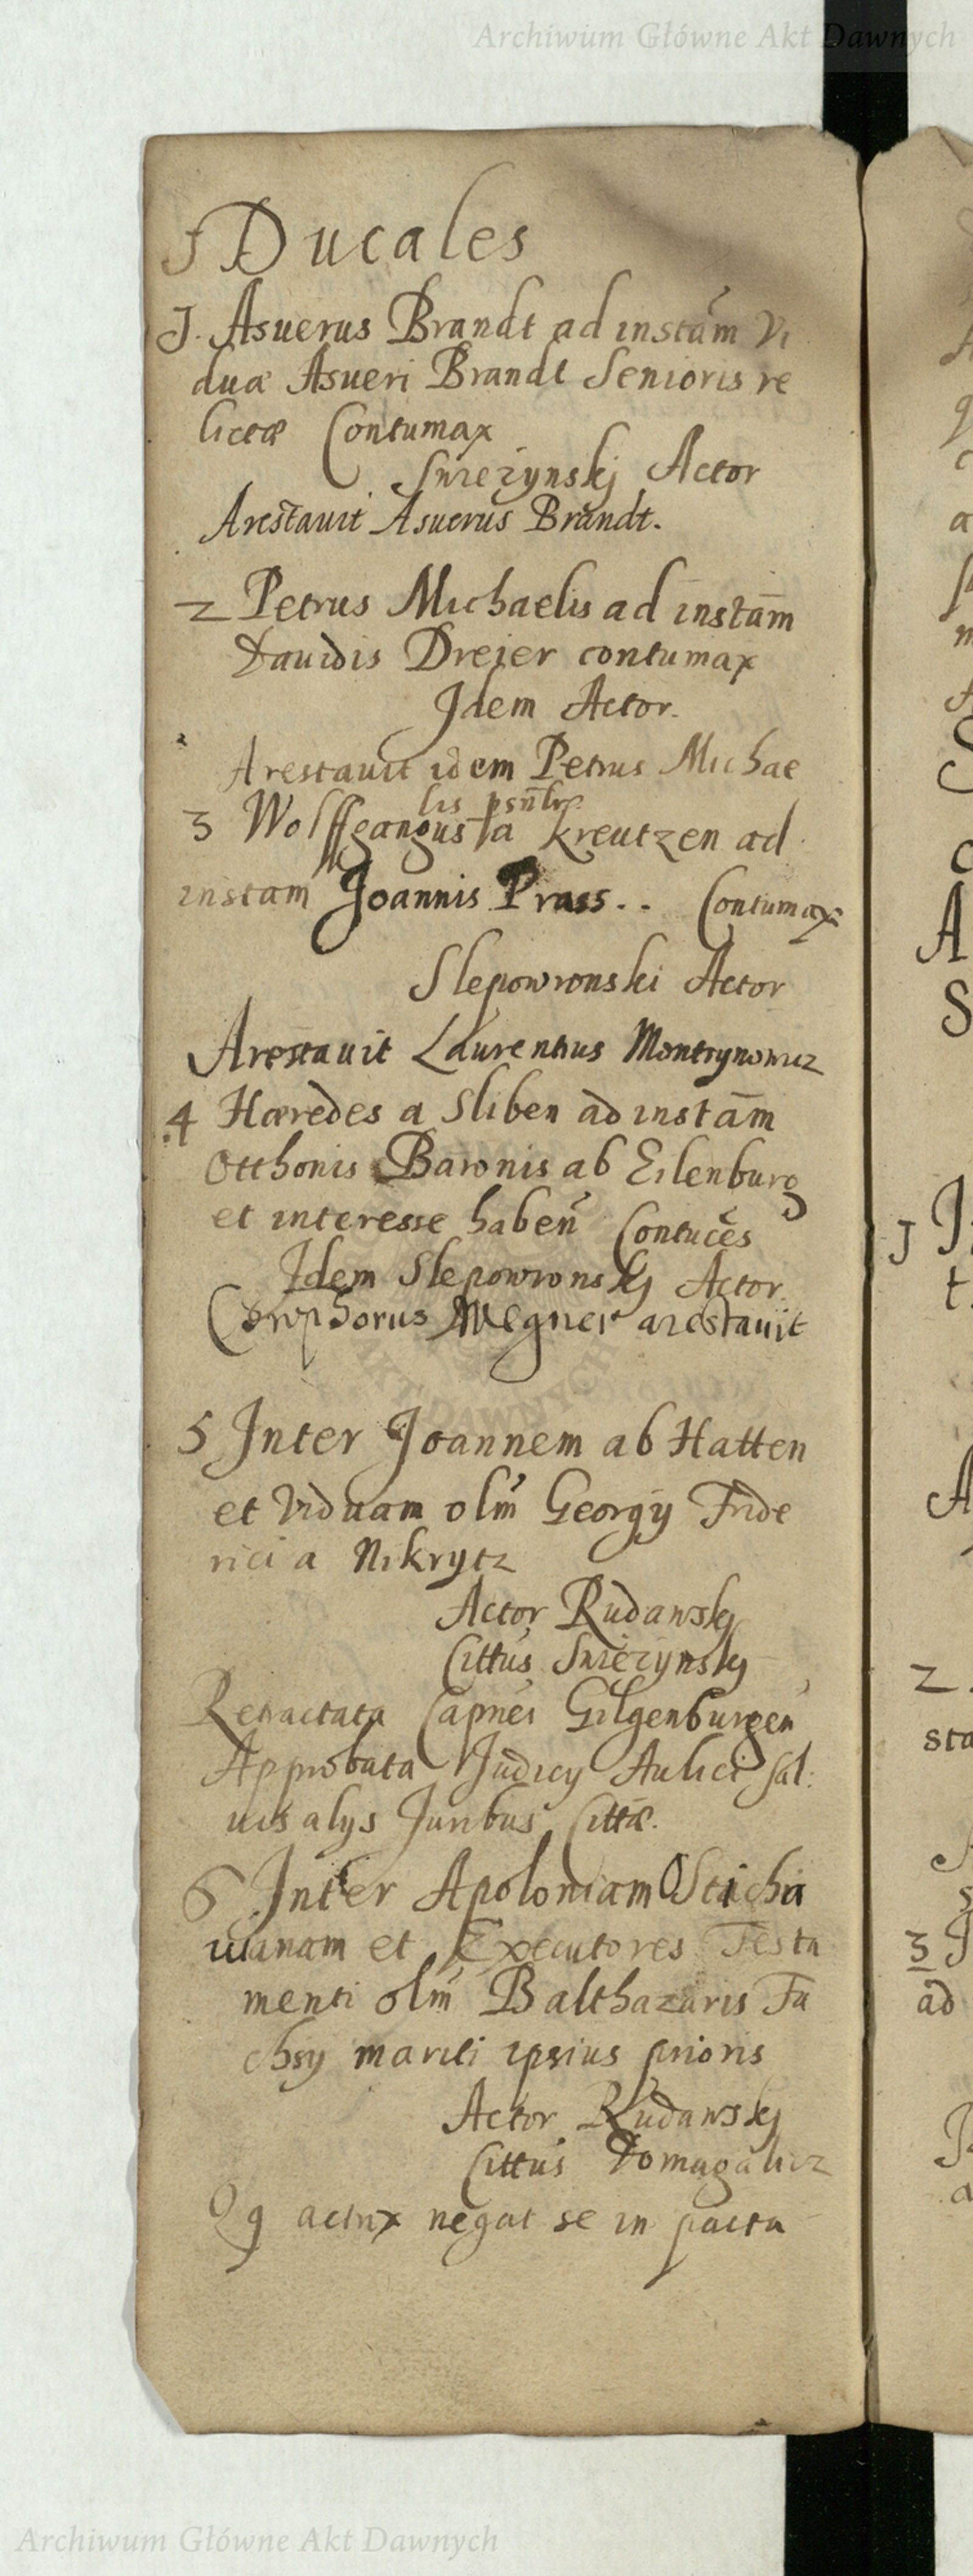 Archiwum Główne Akt Dawnych
J Ducales
J. Asuerus Brandt ad instam̃ Vi
duæ Asueri Brandt Senioris re
lictæ Contumax
Swiezynskj Actor
Arestauit Asuerus Brandt.
2 Petrus Michaelis ad instam̃
Dauidis Dreier contumax
Jdem Actor.
Arestauit idem Petrus Michae
lis
3 Wolffgangus a Kreutzen ad
instam Joannis Prass.. Contumax
Slepowronski Actor
Arestauit Laurentius
4 Hæredes a Sliben ad instam̃
Otthonis Baronis ab Eilenburg
et interesse haben̄ Contuc̃es
Idem Slepowronskj Actor.
Wegner arestauit
5 Inter Joannem ab Hatten
et Viduam olim̃ Georgÿ Fride
rici a Nikrytz
Actor Rudawskj
Cittus Swiezynskj
Retractata Gilgenburgen̄
Approbata Judicÿ Aulici sal:
uis alÿs Juribus Cittæ.
6 Inter Apoloniam Sticha
uianam et Executores Testa
menti olim̃ Balthazaris Fu
chsÿ mariti ipsius prioris
Actor Rudawskj
Cittus Domagalicz
Qq actrix negat se in pacta
J
2
sta
3
ad
Archiwum Główne Akt Dawnych